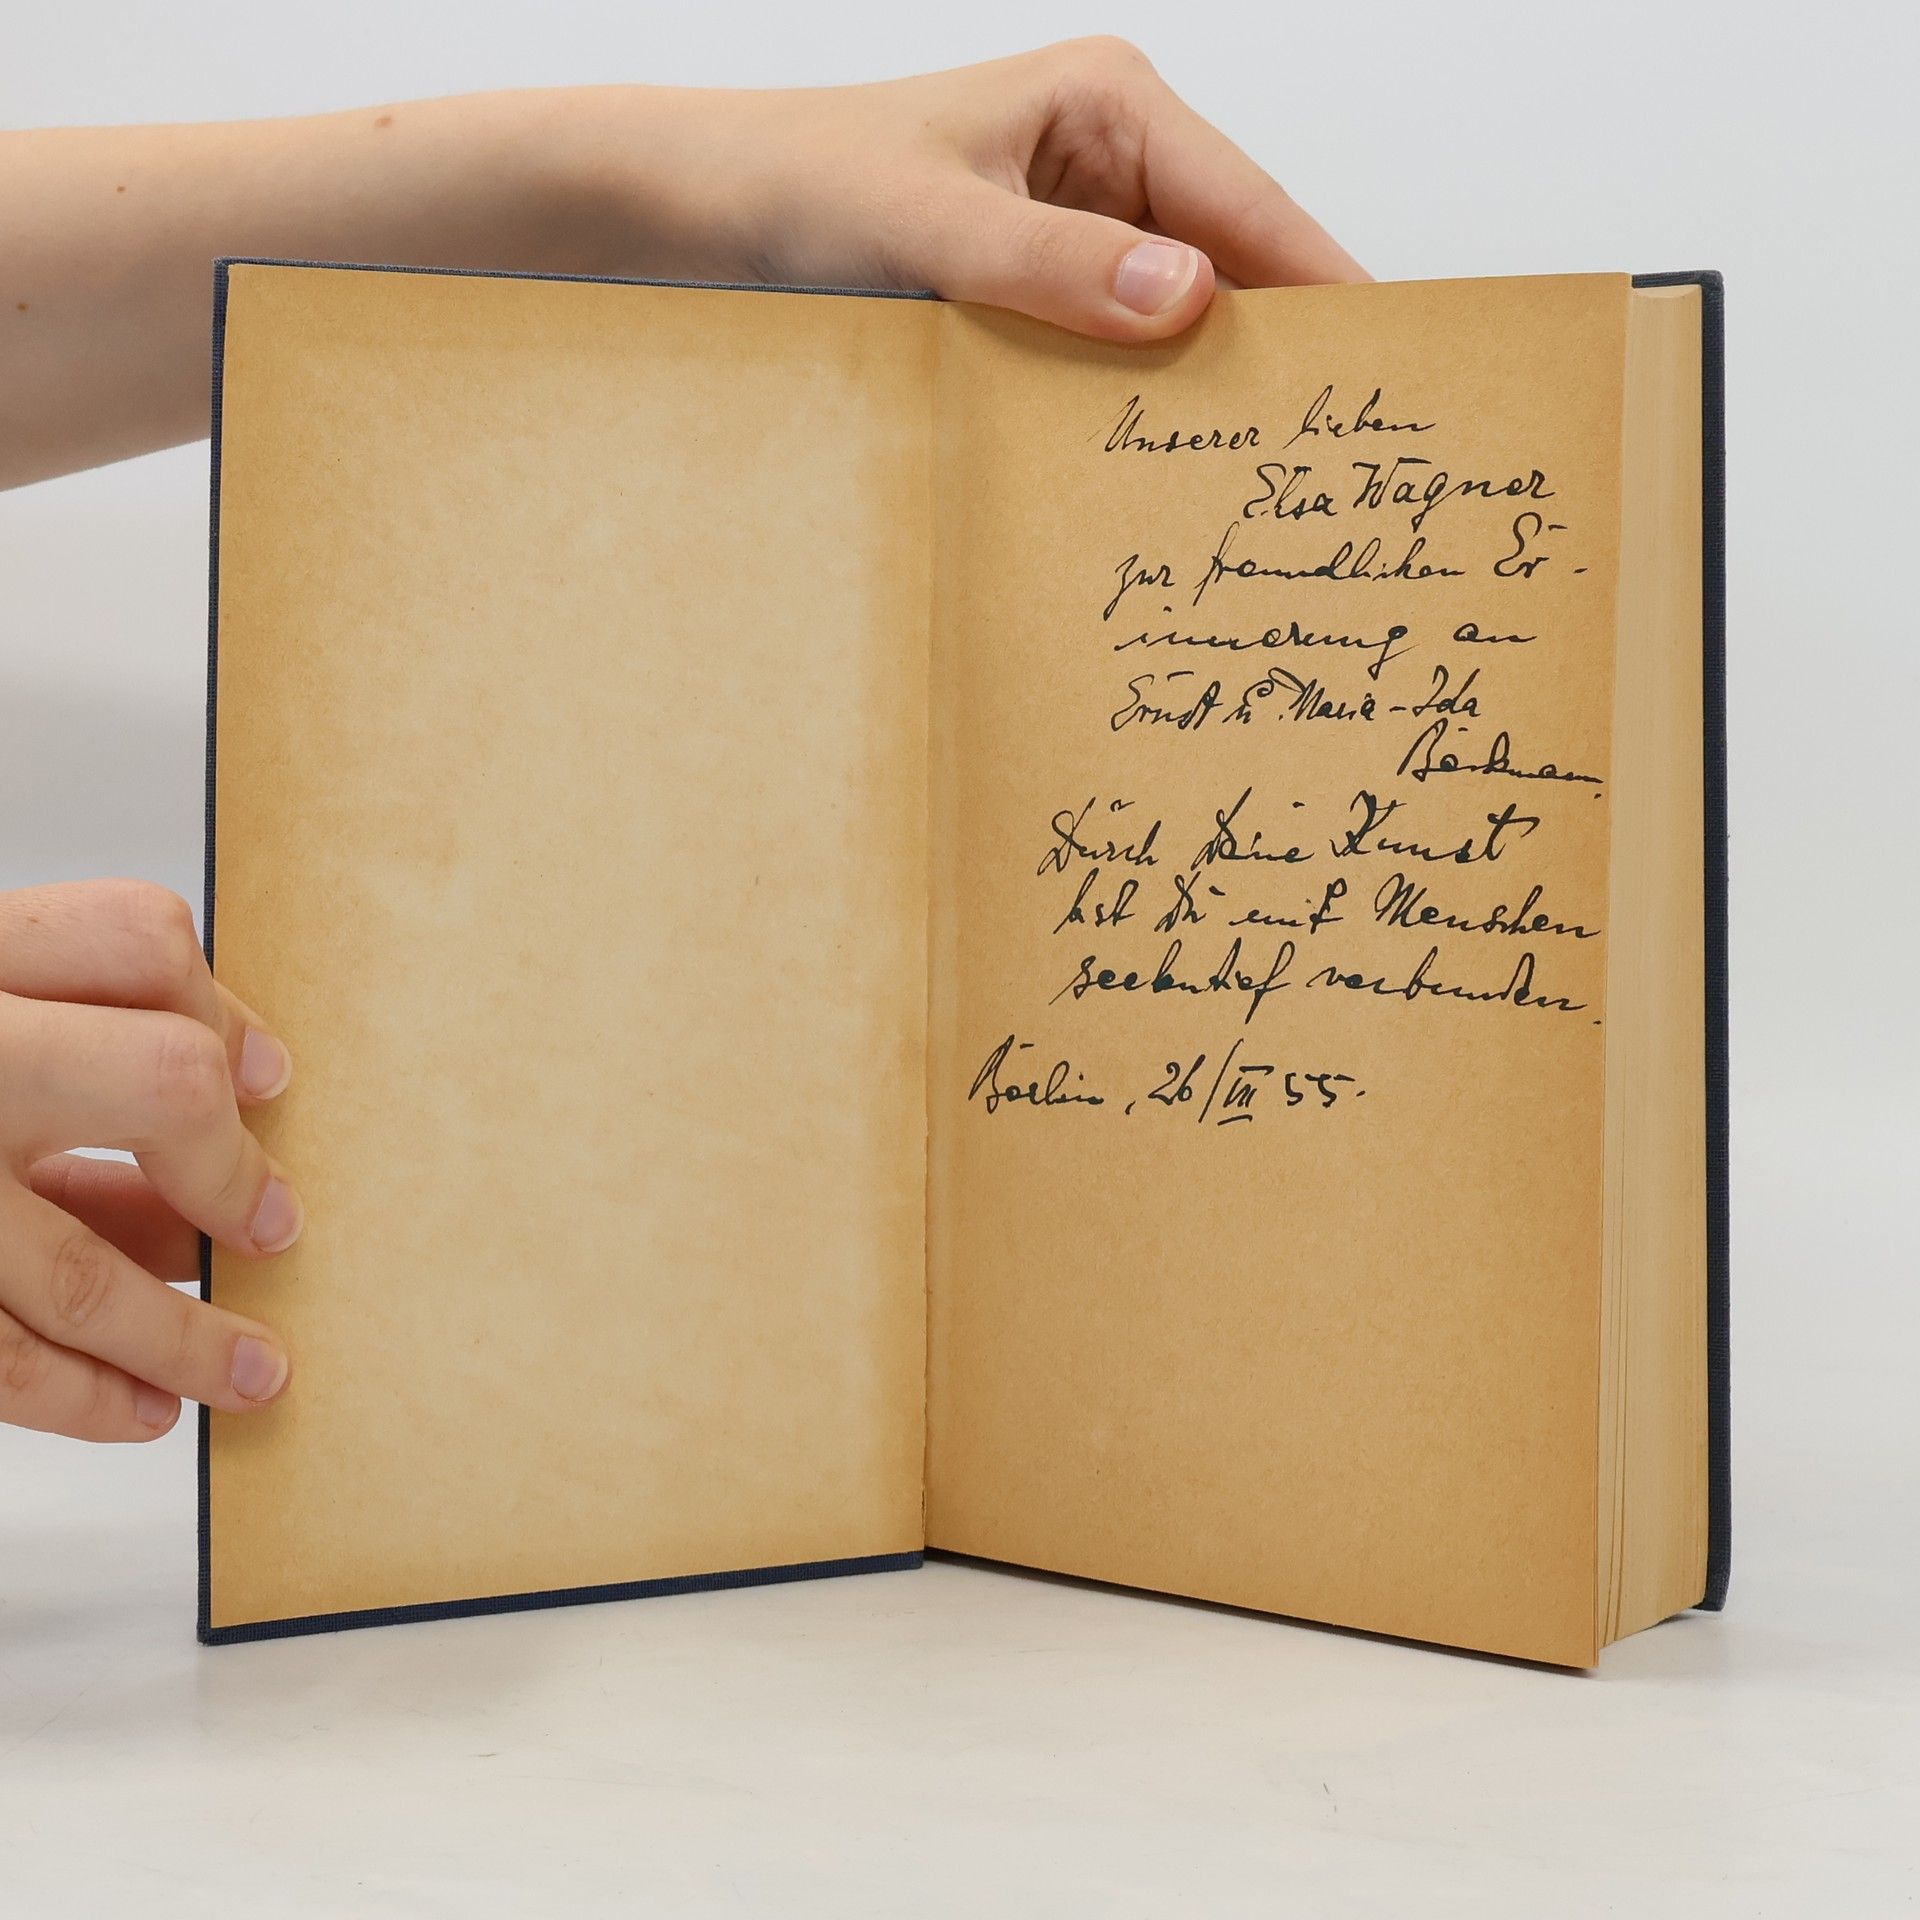 Unserer lieben
Elsa Wagner
zur freundlichen Er-
innerung an
Ernst u. Maria-Ida
Beckmann.
Durch Deine Kunst
bist Du mit Menschen
seelentief verbunden.
Berlin, 26/III 55.